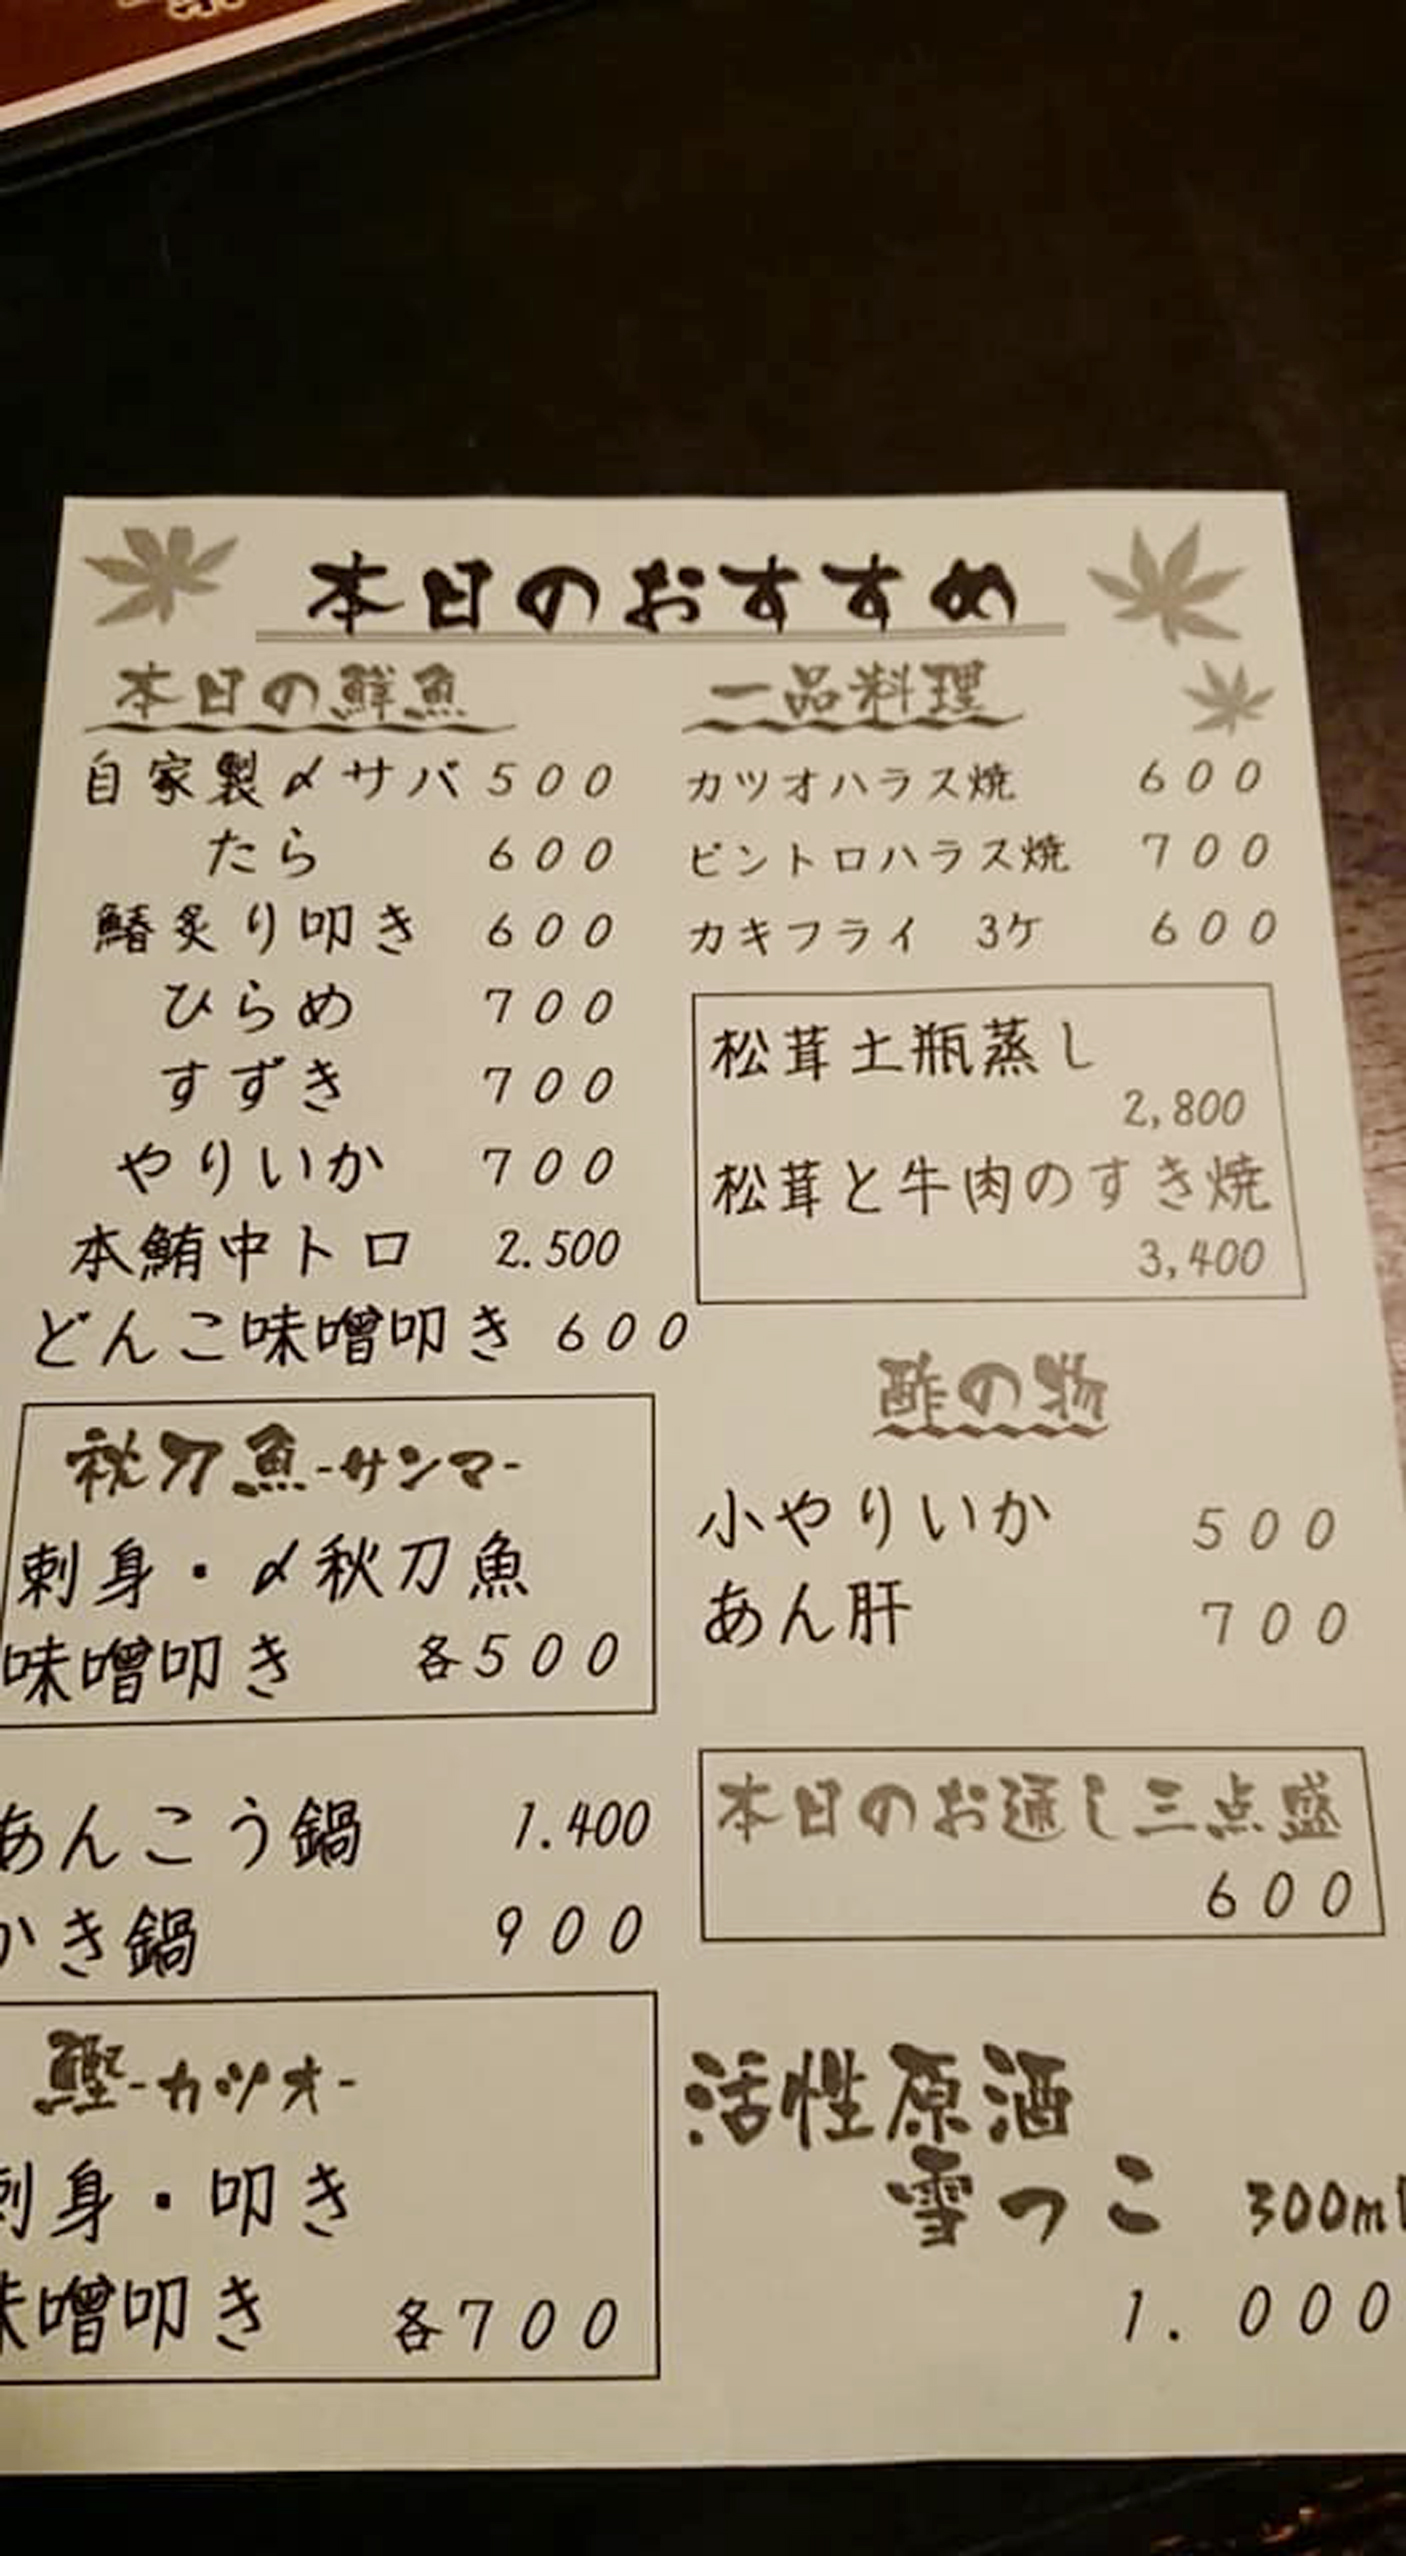 本日のおすすめ
本日の鮮魚
自家製〆サバ 500
たら 600
鰆炙り叩き 600
ひらめ 700
すずき 700
やりいか 700
本鮪中トロ 2.500
どんこ味噌叩き 600
秋刀魚-サンマ-
刺身・〆秋刀魚
味噌叩き 各500
あんこう鍋 1.400
かき鍋 900
鰹-カツオ-
刺身・叩き
味噌叩き 各700
一品料理
カツオハラス焼 600
ビントロハラス焼 700
カキフライ 3ケ 600
松茸土瓶蒸し
2,800
松茸と牛肉のすき焼
3,400
酢の物
小やりいか 500
あん肝 700
本日のお通し三点盛
600
活性原酒
雪っこ 300ml
1.000